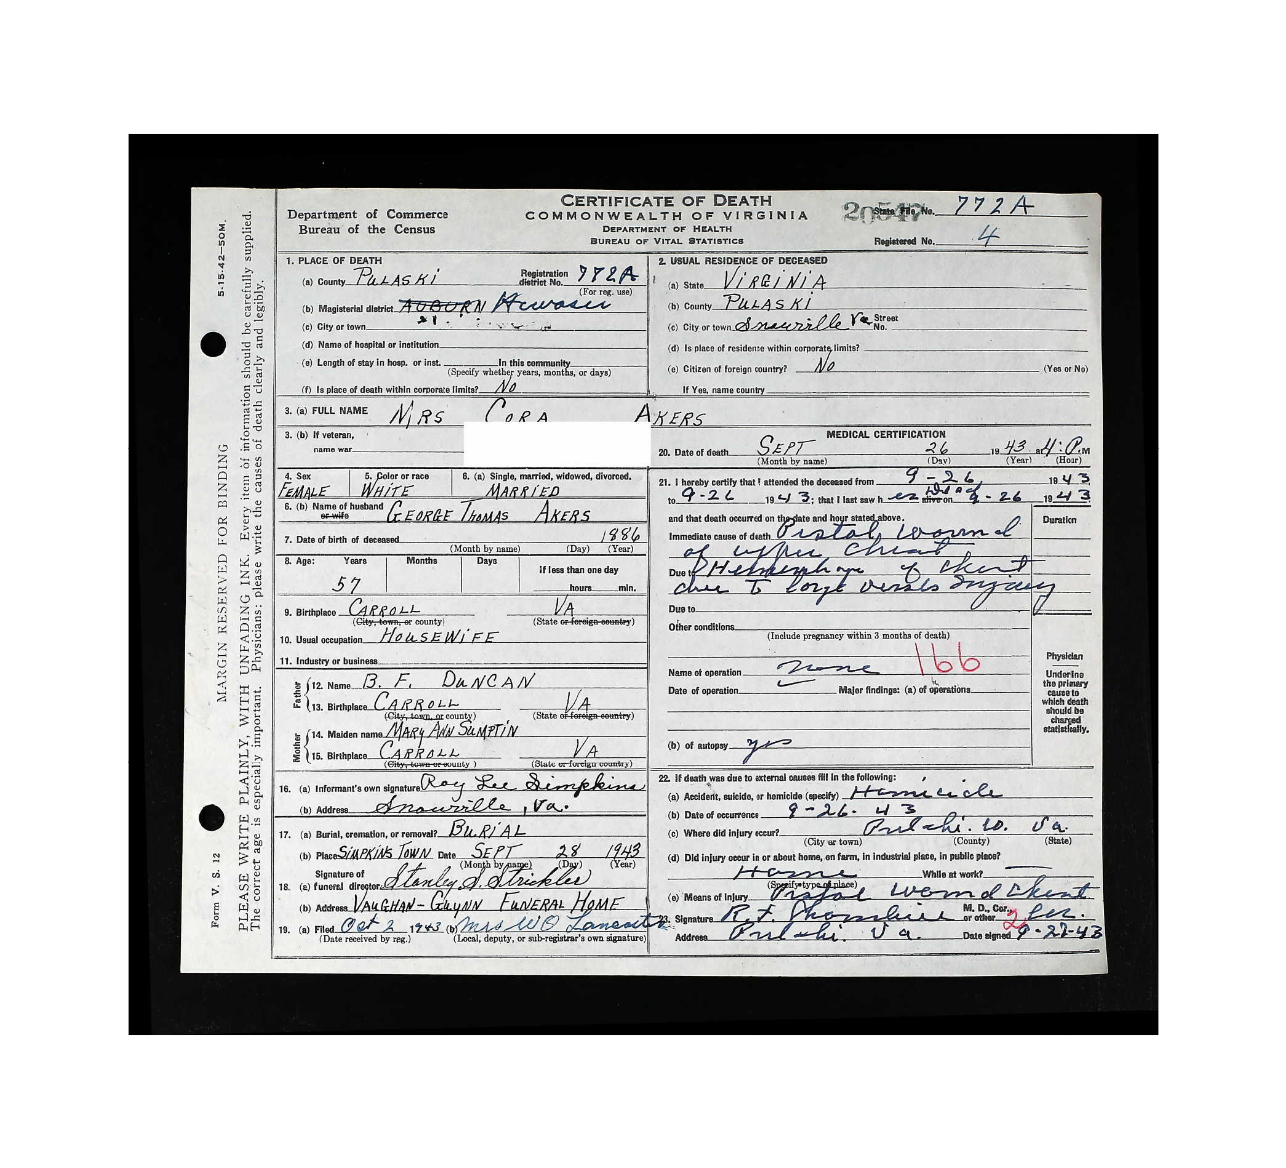 CERTIFICATE OF DEATH
COMMONWEALTH OF VIRGINIA
DEPARTMENT OF HEALTH
BUREAU OF VITAL STATISTICS
Department of Commerce
Bureau of the Census
20547
State File No. 772A
Registered No. 4
5-15-42-50M.
MARGIN RESERVED FOR BINDING
Form V. S. 12
PLEASE WRITE PLAINLY, WITH UNFADING INK. Every item of information should be carefully supplied.
The correct age is especially important. Physicians: please write the causes of death clearly and legibly.
1. PLACE OF DEATH
(a) County PULASKI Registration district No. 772A
(For reg. use)
(b) Magisterial district AUBURN Hiwassee
(c) City or town
(d) Name of hospital or institution
(e) Length of stay in hosp. or inst. In this community
(Specify whether years, months, or days)
(f) Is place of death within corporate limits? NO
2. USUAL RESIDENCE OF DECEASED
(a) State VIRGINIA
(b) County PULASKI
(c) City or town Snowville Va Street No.
(d) Is place of residence within corporate limits?
(e) Citizen of foreign country? No (Yes or No)
If Yes, name country
3. (a) FULL NAME MRS CORA AKERS
3. (b) If veteran,
name war
4. Sex FEMALE
5. Color or race WHITE
6. (a) Single, married, widowed, divorced. MARRIED
6. (b) Name of husband or wife GEORGE THOMAS AKERS
7. Date of birth of deceased 1886
(Month by name) (Day) (Year)
8. Age: Years Months Days If less than one day
57 hours min.
9. Birthplace CARROLL VA
(City, town, or county) (State or foreign country)
10. Usual occupation HOUSEWIFE
11. Industry or business
Father
12. Name B. F. DUNCAN
13. Birthplace CARROLL VA
(City, town, or county) (State or foreign country)
Mother
14. Maiden name MARY ANN SUMPTIN
15. Birthplace CARROLL VA
(City, town or county) (State or foreign country)
16. (a) Informant's own signature Roy Lee Simpkins
(b) Address Snowville, Va.
17. (a) Burial, cremation, or removal? BURIAL
(b) Place SIMPKINS TOWN Date SEPT 28 1943
(Month by name) (Day) (Year)
18. (a) Signature of funeral director Stanley S. Strickler
(b) Address VAUGHAN-GUYNN FUNERAL HOME
19. (a) Filed Oct 2 1943 (b) Mrs W O
(Date received by reg.) (Local, deputy, or sub-registrar's own signature)
MEDICAL CERTIFICATION
20. Date of death SEPT 26 1943 at 4:P.M
(Month by name) (Day) (Year) (Hour)
21. I hereby certify that I attended the deceased from 9-26 1943
to 9-26 1943; that I last saw her alive on dead 9-26 1943
and that death occurred on the date and hour stated above. Duration
Immediate cause of death Pistol wound
of upper chest
Due to Hemorrhage of chest
due to large vessels injury
Due to
Other conditions
(Include pregnancy within 3 months of death)
Name of operation none 166
Date of operation Major findings: (a) of operations
(b) of autopsy yes
Physician
Underline the primary cause to which death should be charged statistically.
22. If death was due to external causes fill in the following:
(a) Accident, suicide, or homicide (specify) Homicide
(b) Date of occurrence 9-26-43
(c) Where did injury occur? Pulaski Co. Va.
(City or town) (County) (State)
(d) Did injury occur in or about home, on farm, in industrial place, in public place?
Home While at work?
(Specify type of place)
(e) Means of injury Pistol wound chest
23. Signature R. F. M. D., Cor. or other Cor. 2
Address Pulaski. Va. Date signed 9-27-43